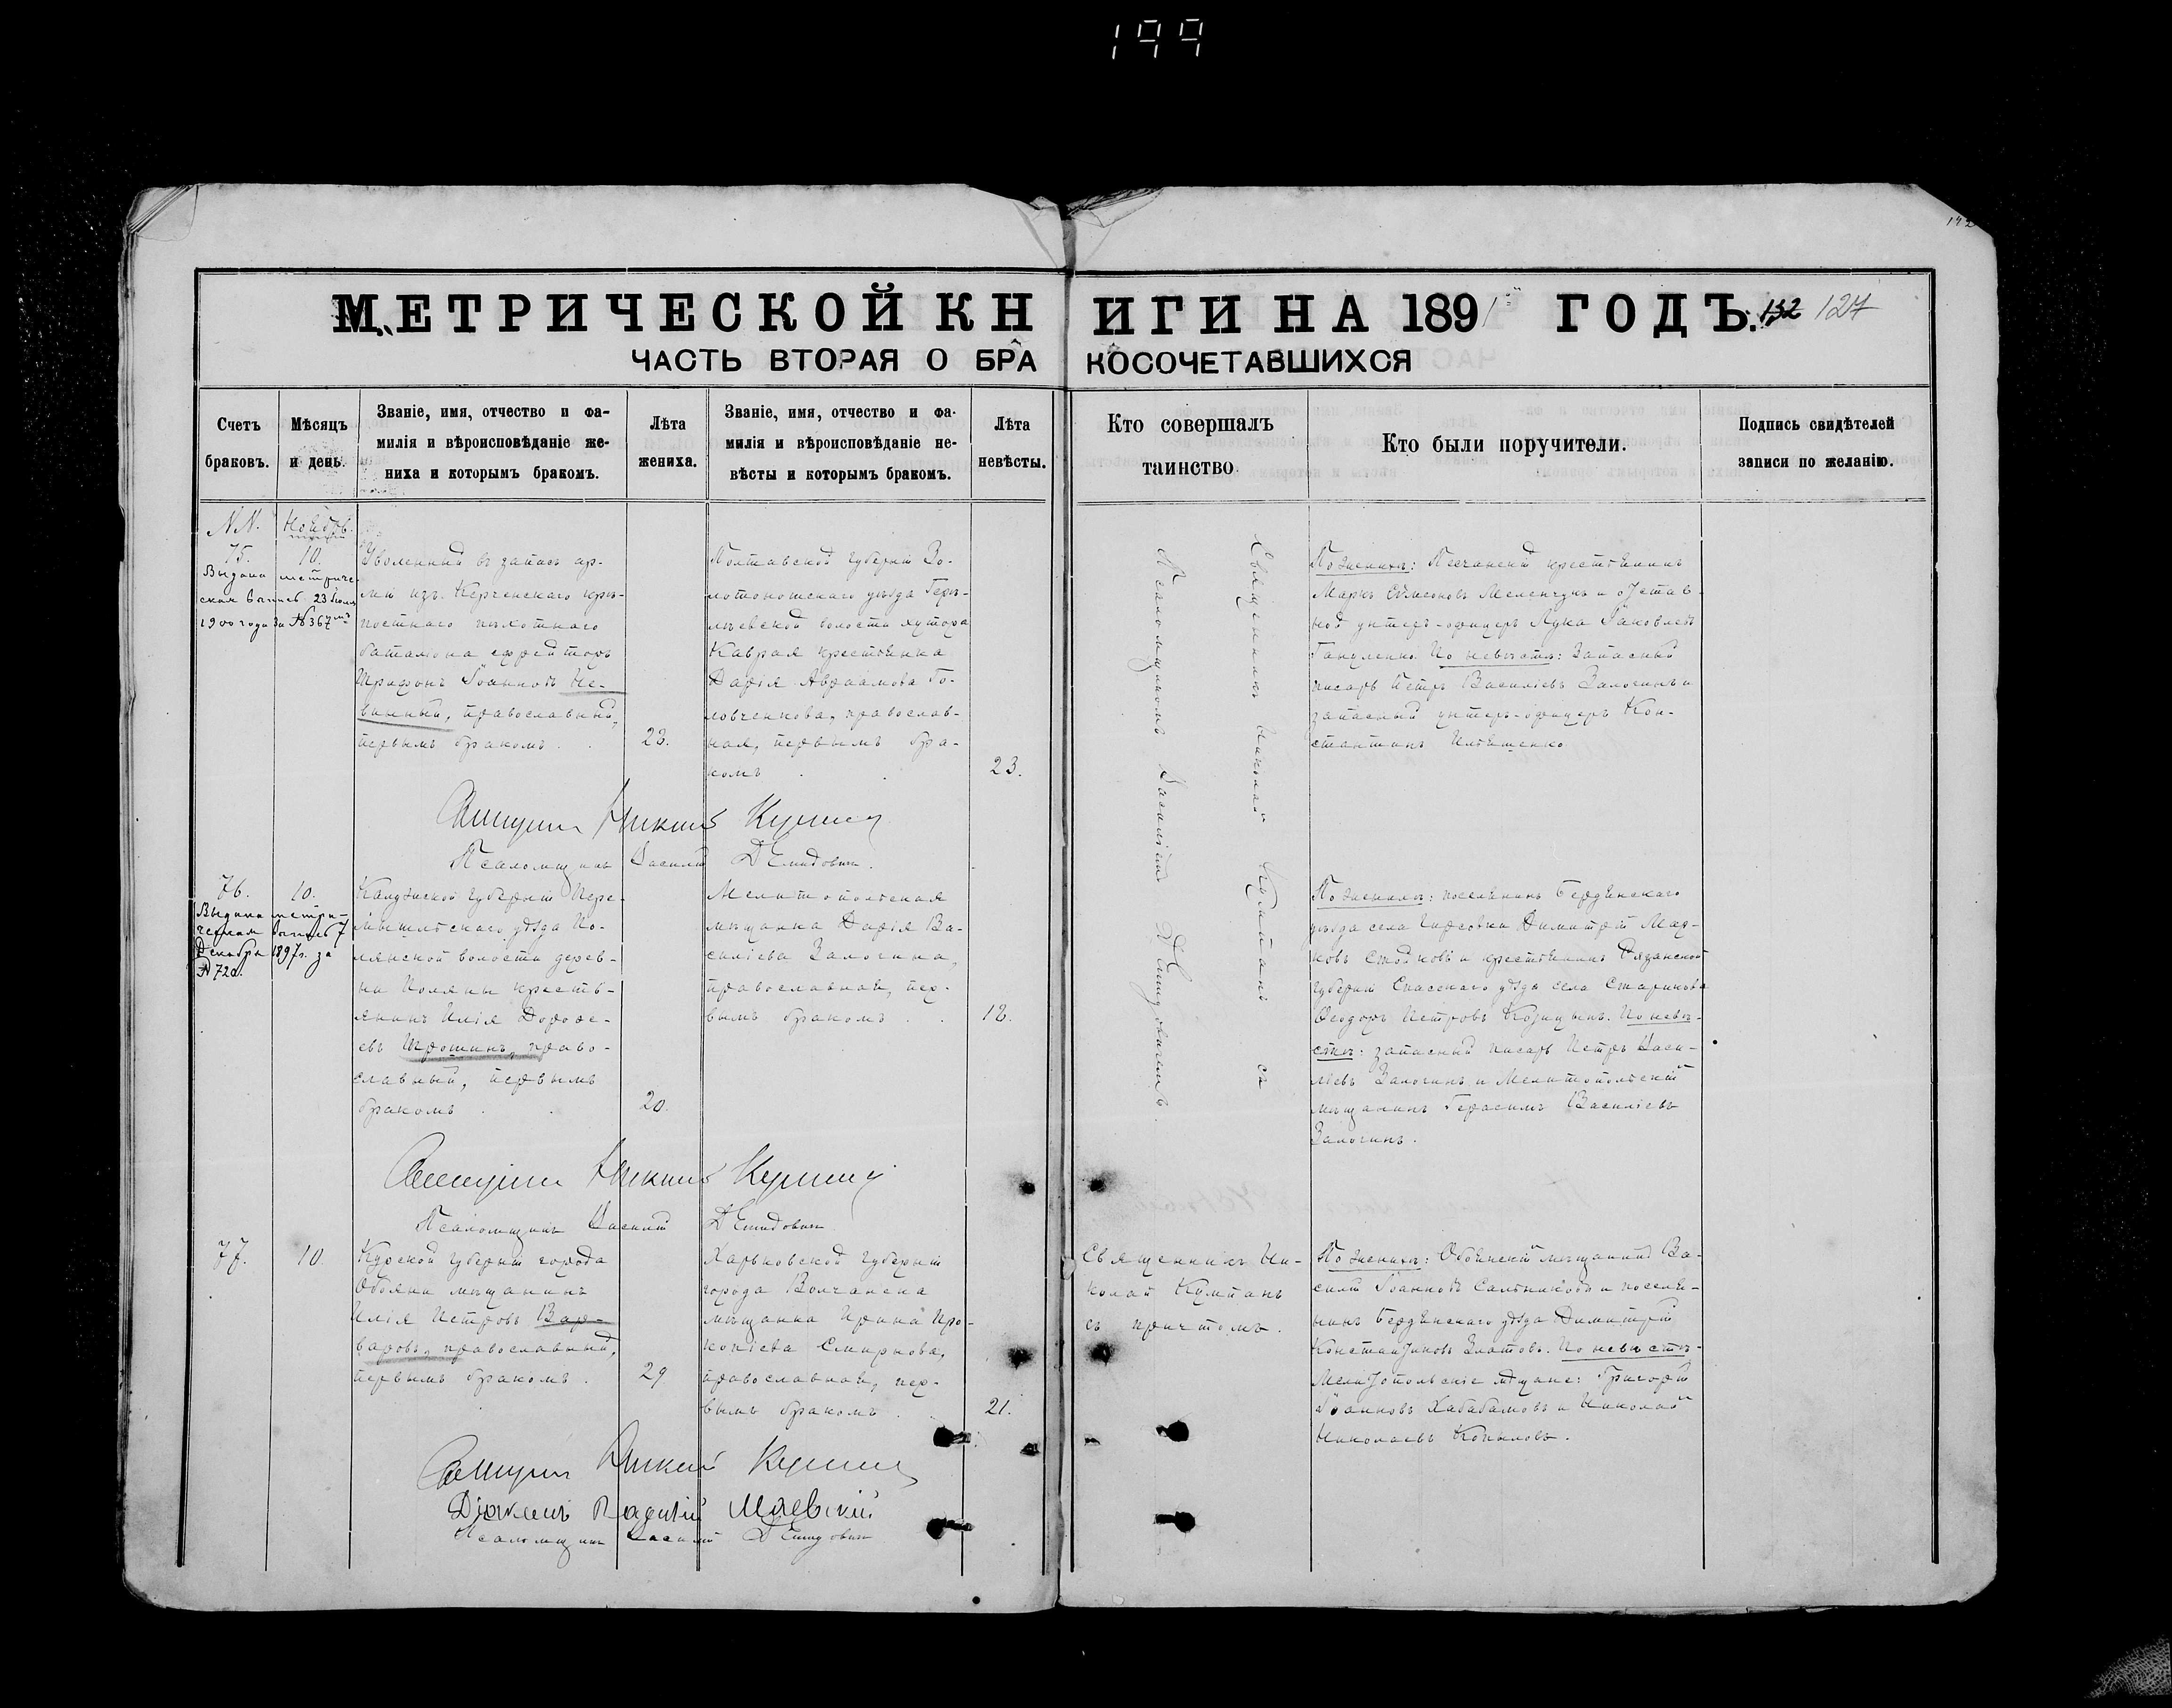 199
142
МЕТРИЧЕСКОЙ КНИГИ НА 1891 ГОДЪ. 132 127
ЧАСТЬ ВТОРАЯ О БРАКОСОЧЕТАВШИХСЯ
Счетъ
браковъ.
Мѣсяцъ
и день.
Званіе, имя, отчество и фа-
милія и вѣроисповѣданіе же-
ниха и которымъ бракомъ.
Лѣта
жениха.
Званіе, имя, отчество и фа-
милія и вѣроисповѣданіе не-
вѣсты и которымъ бракомъ.
Лѣта
невѣсты.
Кто совершалъ
таинство
Кто были поручители.
Подпись свидѣтелей
записи по желанію.
N.N.
Ноябрь.
75.
Выдана метриче-
ская выпись 23 Іюля
1900 года за № 367
10.
Уволенный въ запасъ ар-
міи изъ Керченскаго крѣ-
постнаго пѣхотнаго
баталіона ефрейторъ
Трифонъ Іоанновъ Не-
винный, православный,
первымъ бракомъ.
23.
Полтавской губерніи Зо-
лотоношскаго уѣзда Гель-
мязевской волости хутора
Каврая крестьянка
Дарія Авраамова Го-
ловченкова, православ-
ная, первымъ бра-
комъ
23.
Священникъ Николай Купманъ съ
Псаломщикомъ Василіемъ Демидовичемъ.
По женихѣ: Песчанскій крестьянинъ
Маркъ Сѵмеоновъ Меленчукъ и отстав-
ной унтеръ-офицеръ Лука Іаковлевъ
По невѣстѣ: Запасный
писарь Петръ Василіевъ Залогинъ и
запасный унтеръ-офицеръ Кон-
стантинъ Ильяшенко.
Псаломщикъ Василій Демидовичъ.
76.
Выдана метри-
ческая выпись 7
Декабря 1897 г. за
№ 720.
10.
Калужской губерніи Пере-
мышльскаго уѣзда По-
лянской волости дерев-
ни Поляны крестья-
янинъ Илія Дорофе-
евъ Трошинъ, право-
славный, первымъ
бракомъ
20.
Мелитопольская
мѣщанка Дарія Ва-
силіева Залогина,
православная, пер-
вымъ бракомъ
18.
По женихѣ: поселянинъ Бердянскаго
уѣзда села Гирсовки Димитрій Мар-
ковъ Стойковъ и крестьянинъ Рязанской
губерніи Спасскаго уѣзда села Старикова
Ѳеодоръ Петровъ Козицынъ. По невѣ-
стѣ: запасный писарь Петръ Васи-
ліевъ Залогинъ и Мелитопольскій
мѣщанинъ Герасимъ Василіевъ
Залогинъ.
Псаломщикъ Василій Демидовичъ
77.
10.
Курской губерніи города
Обояни мѣщанинъ
Илія Петровъ Вар-
варовъ, православный,
первымъ бракомъ.
29
Харьковской губерніи
города Волчанска
мѣщанка Ирина Про-
копіева Смирнова,
православная, пер-
вымъ бракомъ
21.
Священникъ Ни-
колай Купманъ
съ причтомъ.
По женихѣ: Обоянскій мѣщанинъ Ва-
силій Іоанновъ Сальниковъ и поселя-
нинъ Бердянскаго уѣзда Димитрій
Константиновъ Златовъ. По невѣстѣ-
Мелитопольскіе мѣщане: Григорій
Іоанновъ Хабабӑмовъ и Николай
Николаевъ Копыловъ.
Псаломщикъ Василій Демидовичъ